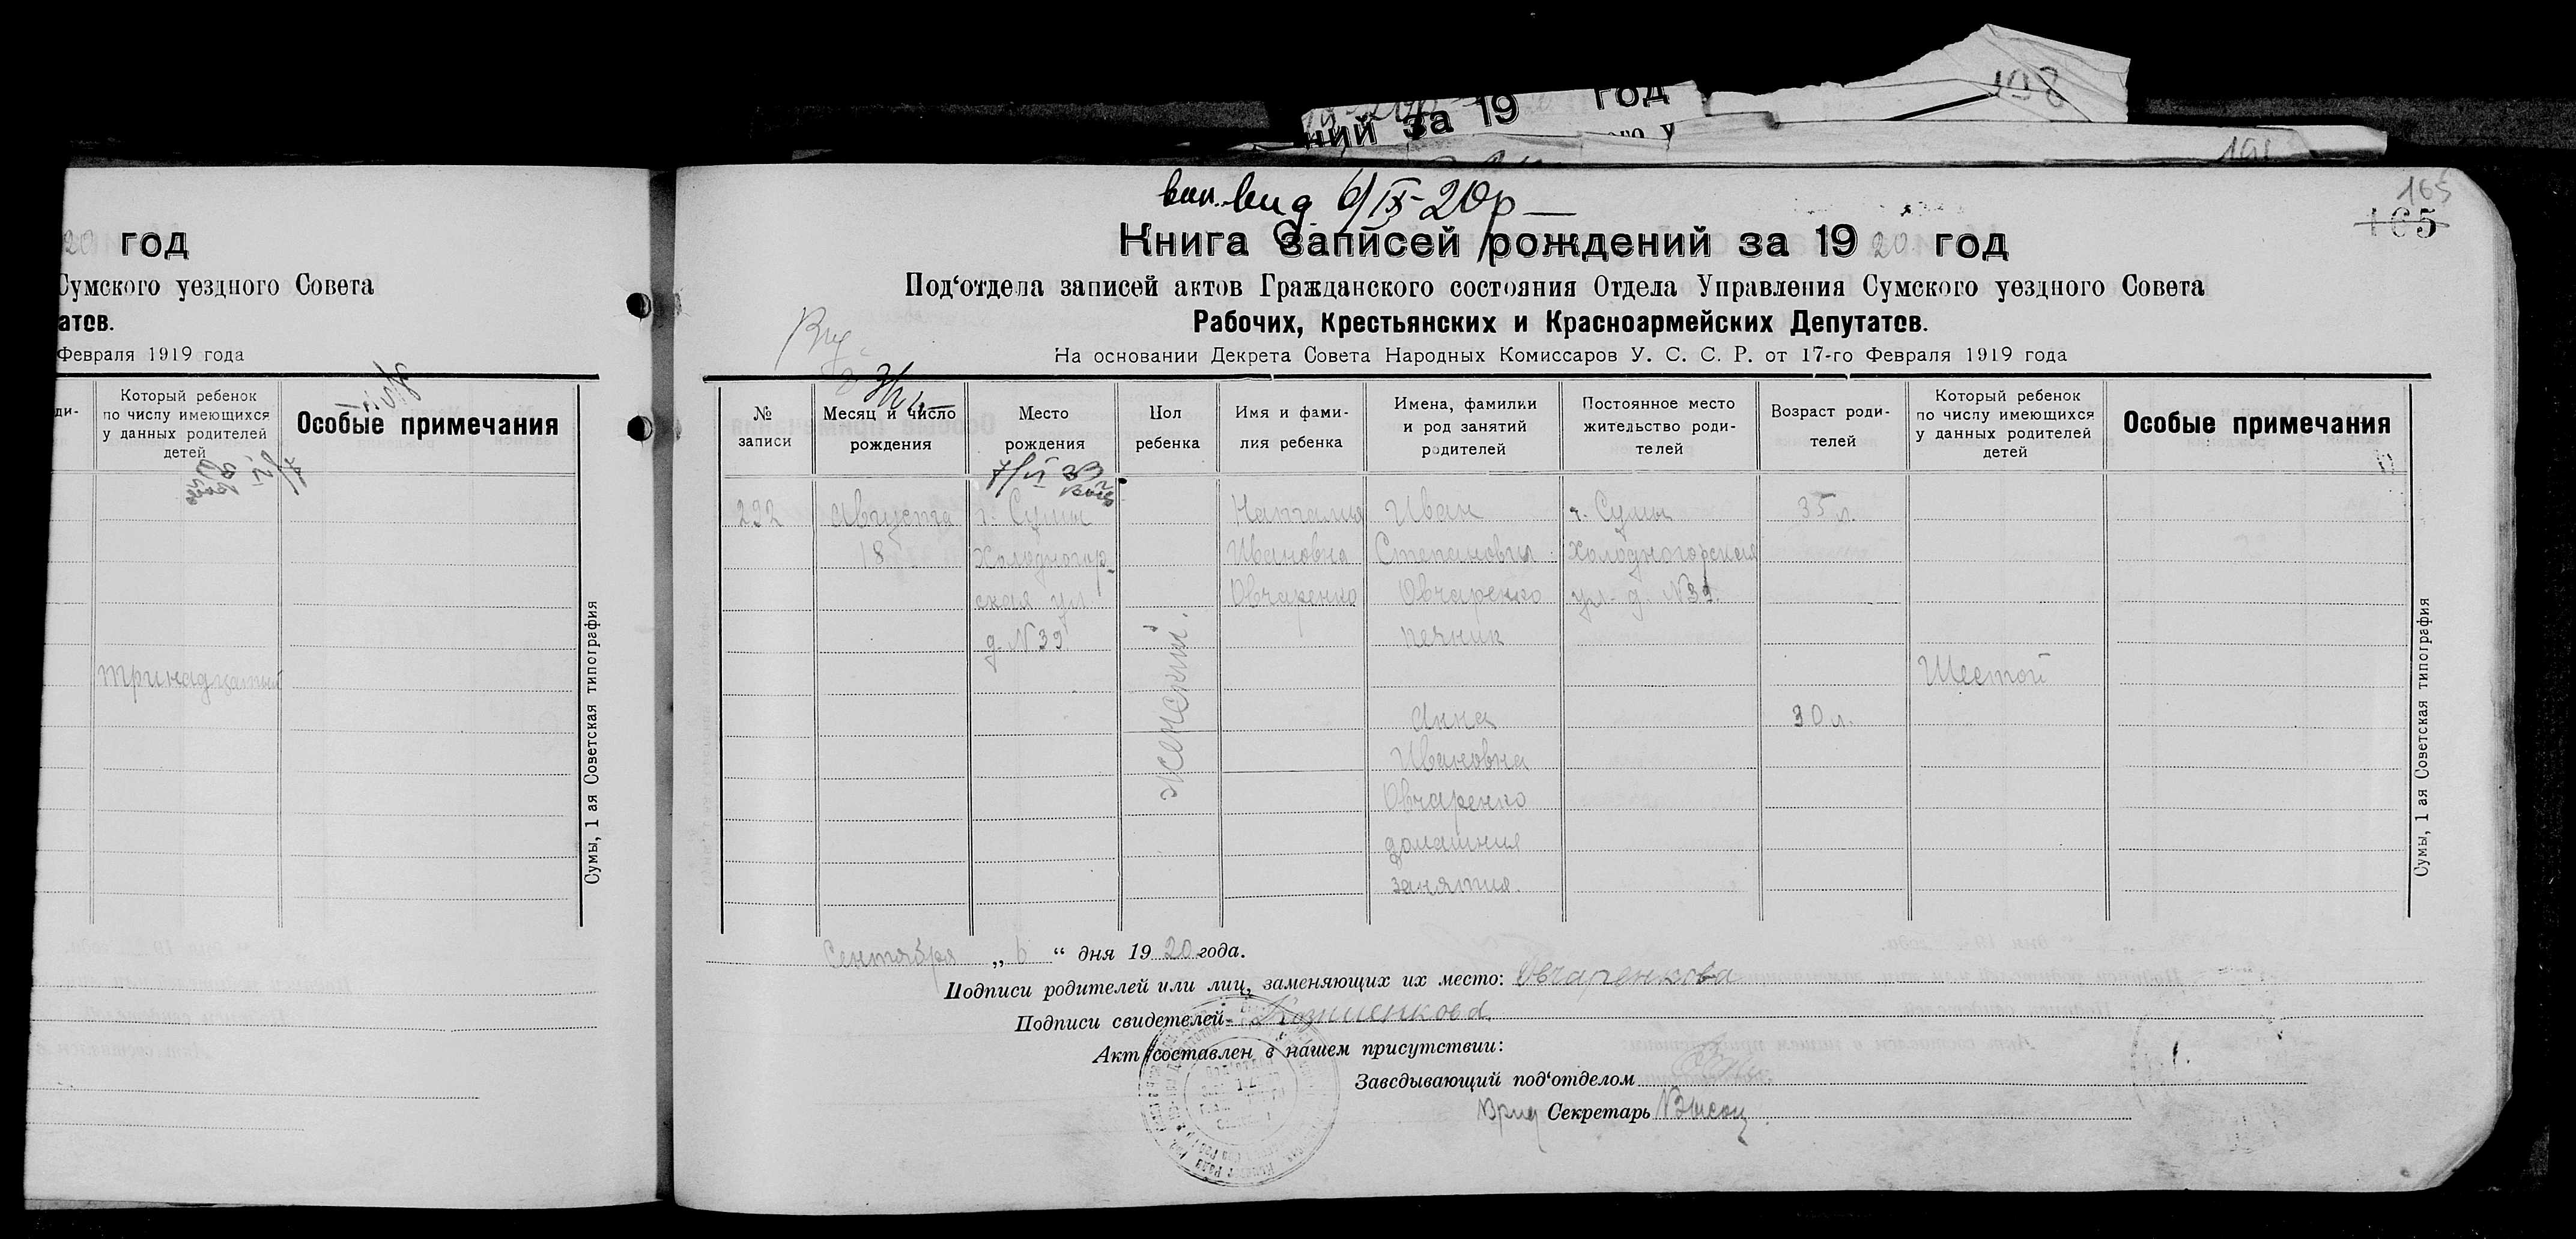 198
ний за 19 год
191
20 год
Сумского уездного Совета
атов.
Февраля 1919 года
ди-
Который ребенок
по числу имеющихся
у данных родителей
детей
Особые примечания
тринадцатый
Сумы, 1 ая Советская типография
6/IX-20р
165
165
Книга записей рождений за 1920 год
Под‘отдела записей актов Гражданского состояния Отдела Управления Сумского уездного Совета
Рабочих, Крестьянских и Красноармейских Депутатов.
На основании Декрета Совета Народных Комиссаров У. С. С. Р. от 17-го Февраля 1919 года
№
записи
Месяц и число
рождения
Место
рождения
Пол
ребенка
Имя и фами-
лия ребенка
Имена, фамилки
и род занятий
родителей
Постоянное место
жительство роди-
телей
Возраст роди-
телей
Который ребенок
по числу имеющихся
у данных родителей
детей
Особые примечания
7/VI
292
Августа
18
г. Сумы
Холодногор-
ская ул.
д. N 39
женский.
Наталия
Ивановна
Овчаренко
Иван
Степанович
Овчаренко
печник
Анна
Ивановна
Овчаренко
домашние
занятия.
г. Сумы
Холодногорская
ул. д. N 39.
35 л.
30 л.
Шестой
Сумы, 1 ая Советская типография
Сентября „ 6 “ дня 1920 года.
Подписи родителей или лиц, заменяющих их место: Овчаренкова
Подписи свидетелей
Акт составлен в нашем присутствии:
Заведывающий под‘отделом
Врид Секретарь